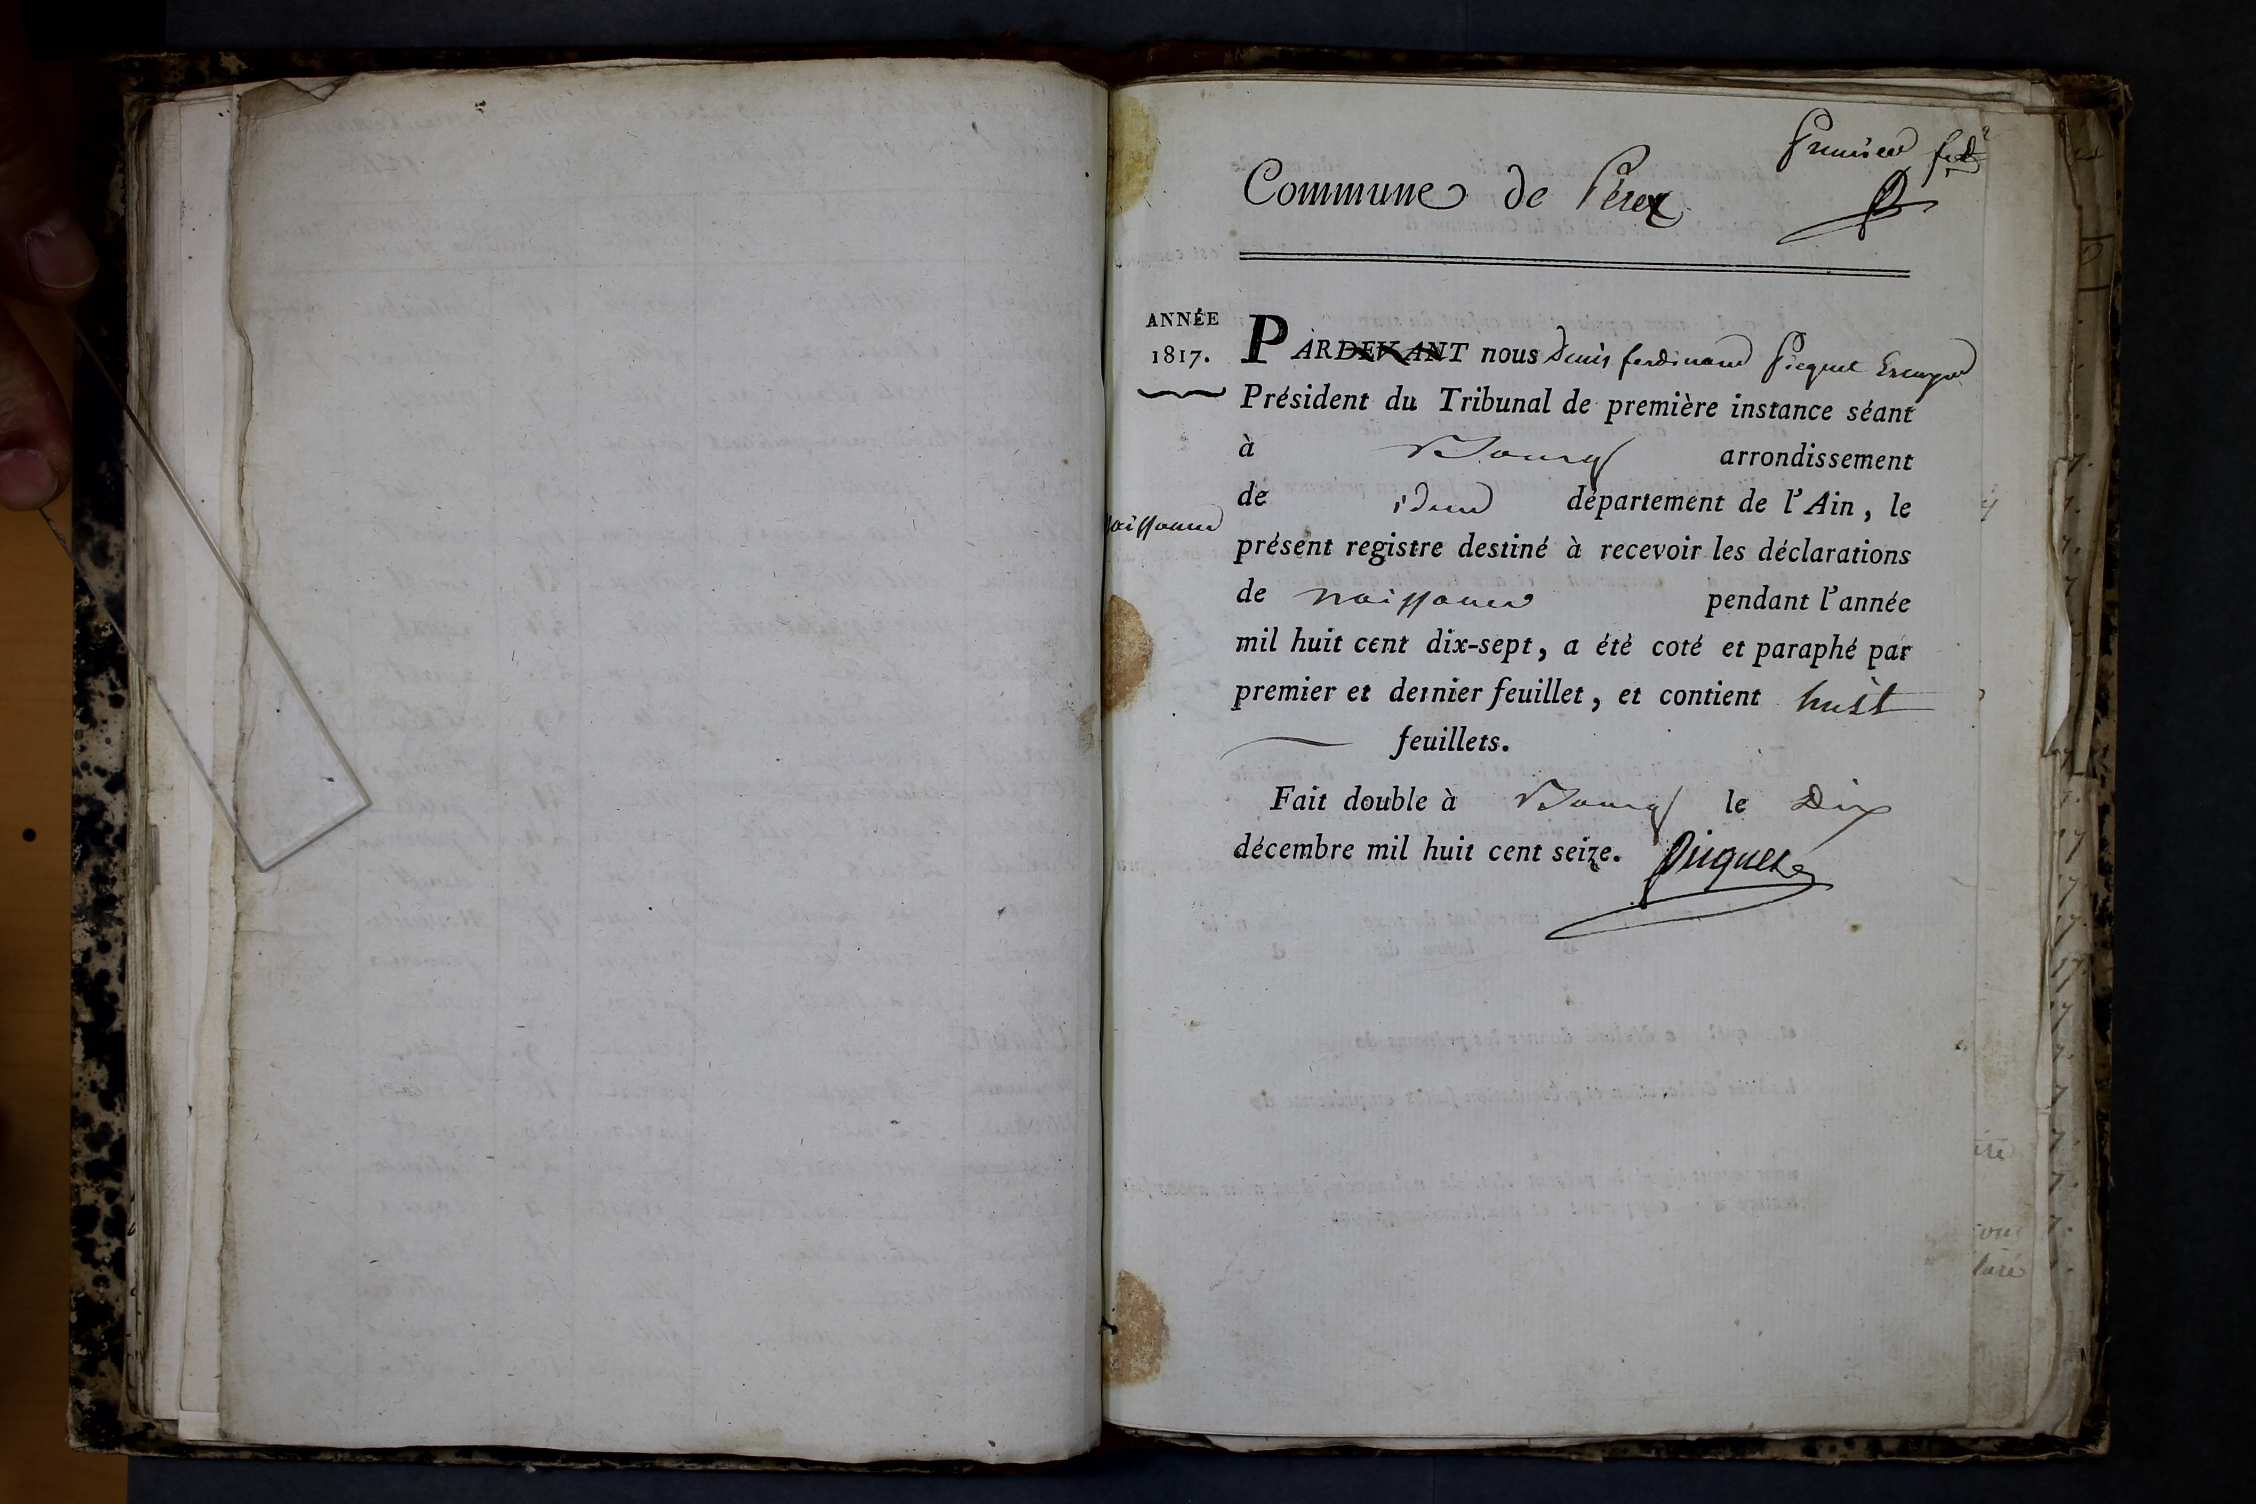 Premier
Commune de Pérex
ANNÉE
1817.
PARDEVANT nous Denis ferdinand Picquet Ecuyer
Président du Tribunal de première instance séant
à Bourg arrondissement
de idem département de l'Ain, le
naissance
présent registre destiné à recevoir les déclarations
de naissance pendant l'année
mil huit cent dix-sept, a été coté et paraphé par
premier et dernier feuillet, et contient huit
feuillets.
Fait double à Bourg le Dix
décembre mil huit cent seize. Picquet